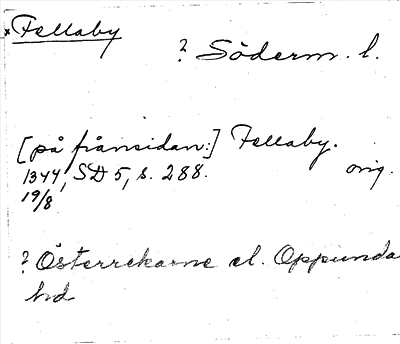 *Fellaby
? Söderm. l.
[på frånsidan:] Fellaby.
1344, SD 5, s. 288. orig.
19/8
? Österrekarne el. Oppunda
hd